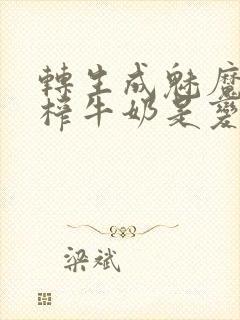 轉生成魅魔
榨牛奶是變
梁斌